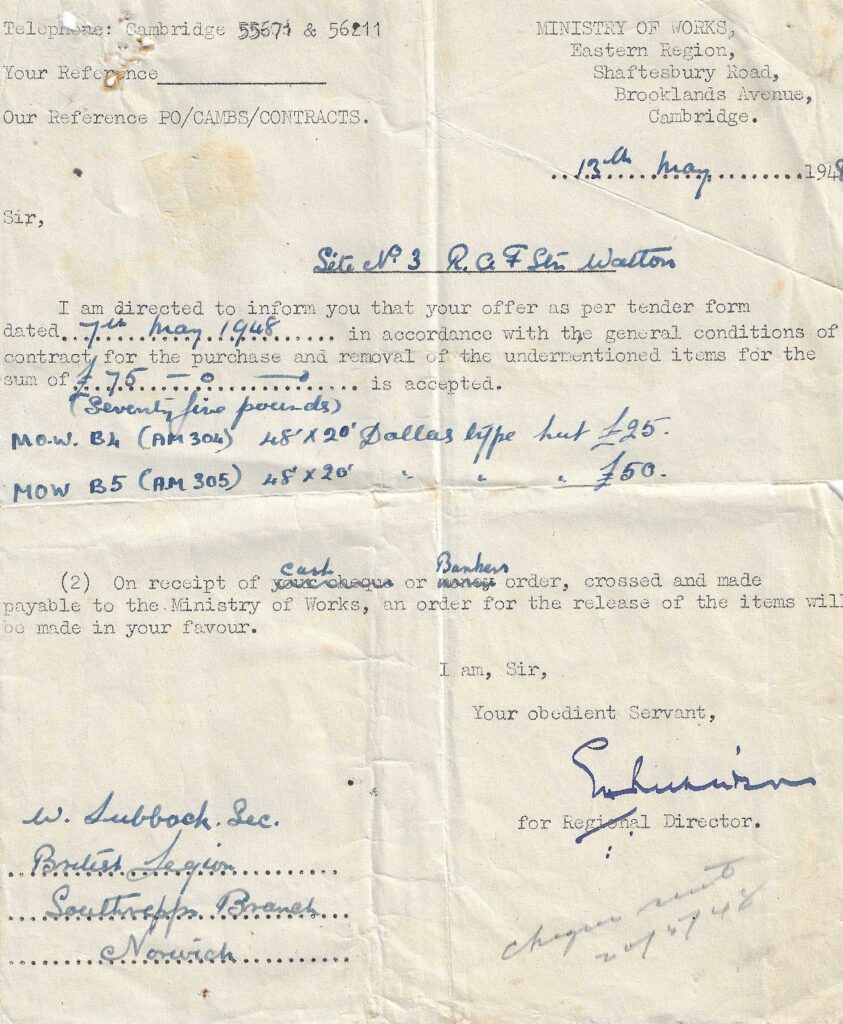 Telephone: Cambridge 55671 & 56211
MINISTRY OF WORKS,
Eastern Region,
Shaftesbury Road,
Brooklands Avenue,
Cambridge.
Your Reference
Our Reference PO/CAMBS/CONTRACTS.
13th May 1948
Sir,
Site No 3 R.A.F Stn Watton
I am directed to inform you that your offer as per tender form
dated 7th May 1948 in accordance with the general conditions of
contract for the purchase and removal of the undermentioned items for the
sum of £75 — 0 — 0 is accepted.
(Seventy five pounds)
M.O.W. B4 (AM 304) 48' X 20' Dallas type hut £25.
MOW B5 (AM 305) 48' X 20' " " " £50.
cash Bankers
(2) On receipt of your cheque or money order, crossed and made
payable to the Ministry of Works, an order for the release of the items will
be made in your favour.
I am, Sir,
Your obedient Servant,
for Regional Director.
W. Lubbock. Sec.
British Legion
Southrepps Branch
Norwich
cheque sent
20/5/48